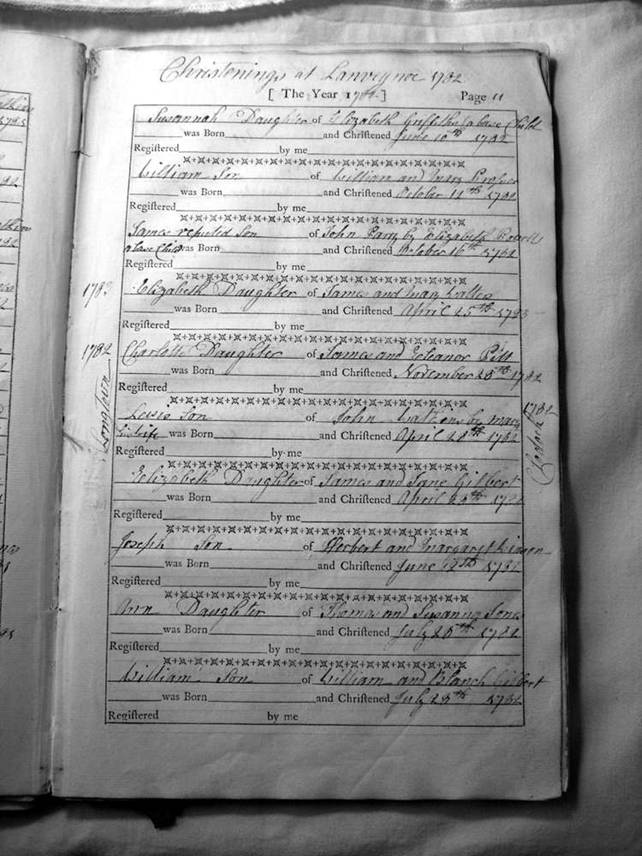 Christenings at Lanveynoe 1782
[ The Year 1782 ] Page 11
Susannah Daughter of Elizabeth a base Child
was Born and Chriſtened June 10th 1782
Regiſtered by me
William Son of William and Mary Prosser
was Born and Chriſtened October 11th 1782
Regiſtered by me
James reputed Son of John Parry by Elizabeth Powell
a base Child was Born and Chriſtened October 16th 1782
Regiſtered by me
1783 Elizabeth Daughter of James and Mary Watkins
was Born and Chriſtened April 25th 1783
Regiſtered by me
1782 Charlotte Daughter of James and Eleanor Pitt
was Born and Chriſtened November 28th 1782
Regiſtered by me
Longtown
Lewis Son of John Watkins by Mary 1782
his wife was Born and Chriſtened April 28th 1782
Regiſtered by me
Elizabeth Daughter of James and Jane Gilbert
was Born and Chriſtened April 29th 1782
Regiſtered by me
Joseph Son of Herbert and Margaret
was Born and Chriſtened June 1782
Regiſtered by me
Ann Daughter of Thomas and Susanna Jones
was Born and Chriſtened July 28th 1782
Regiſtered by me
William Son of William and Blanch Gilbert
was Born and Chriſtened July 28th 1782
Regiſtered by me